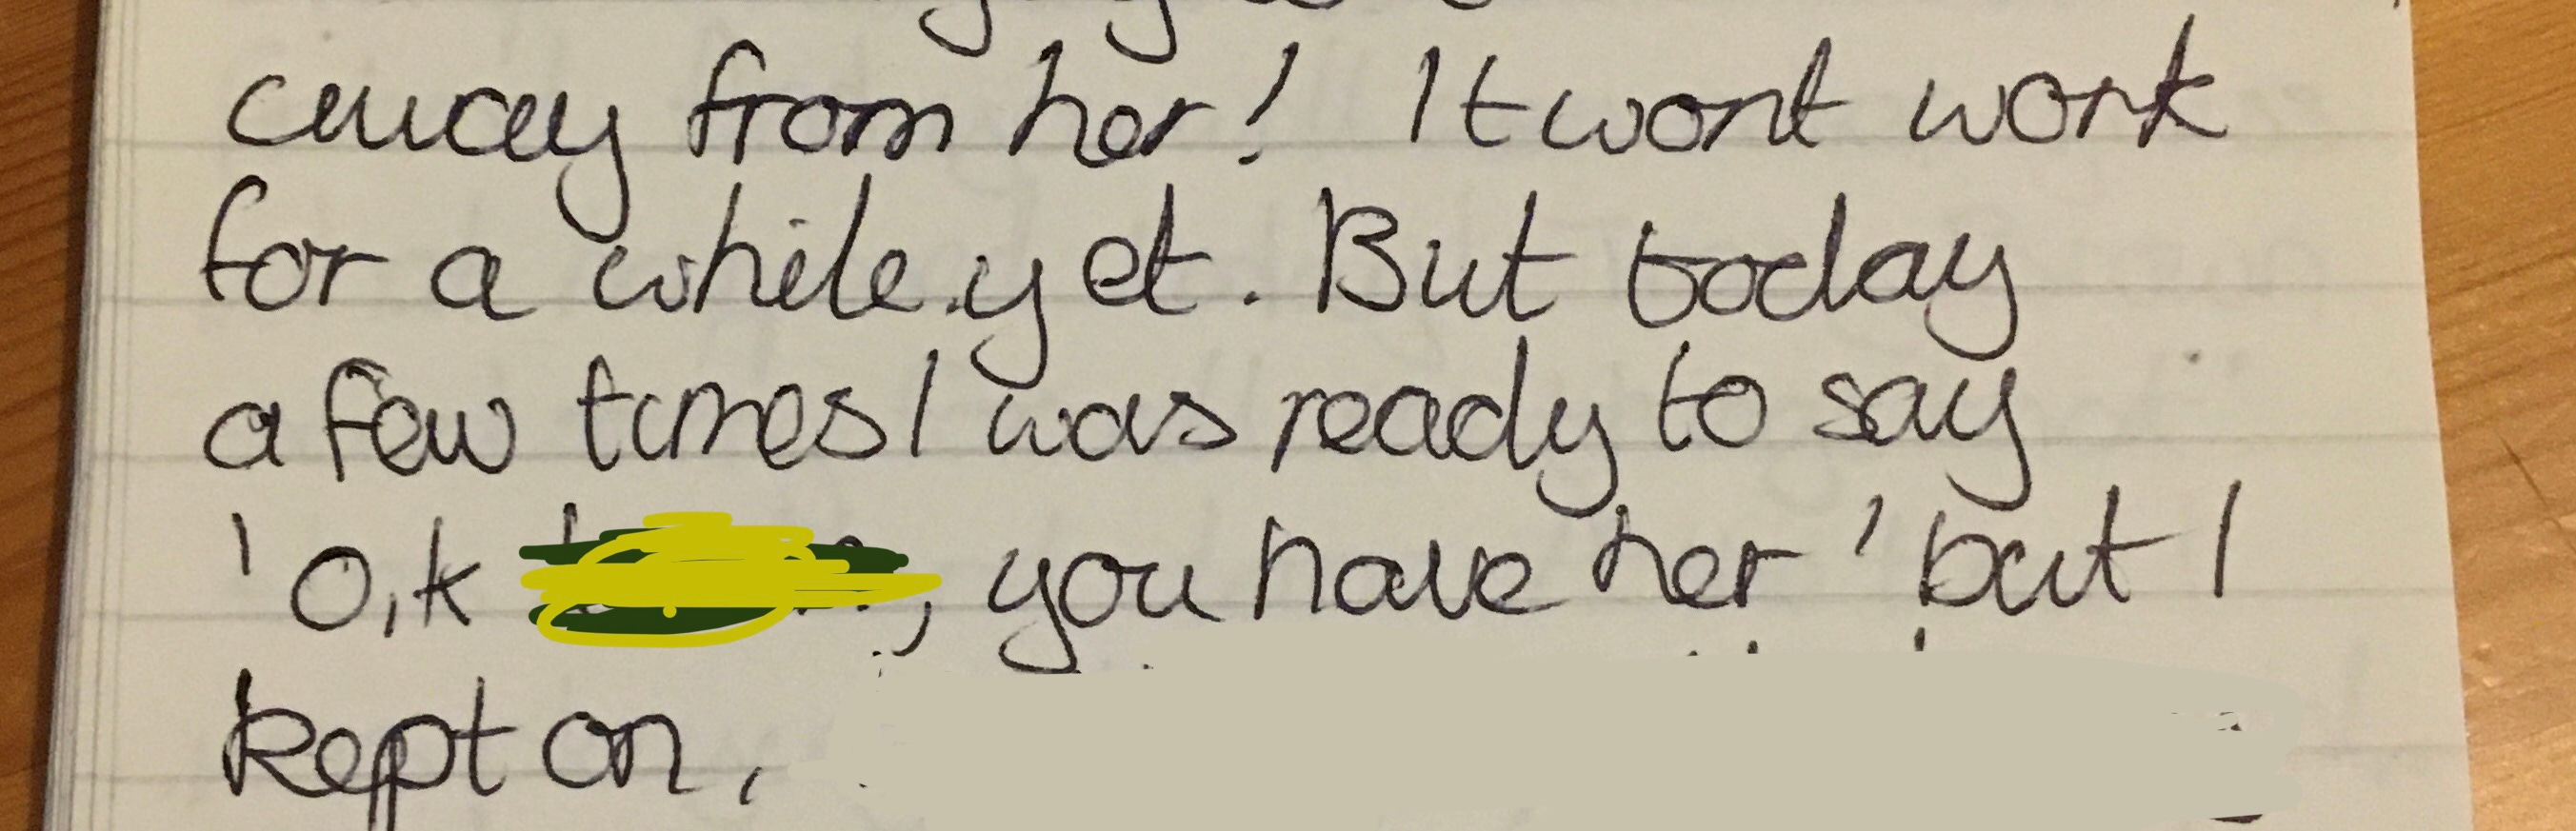 away from her! It wont work
for a while yet. But today
a few times I was ready to say
'O,k , you have her' but I
kept on,